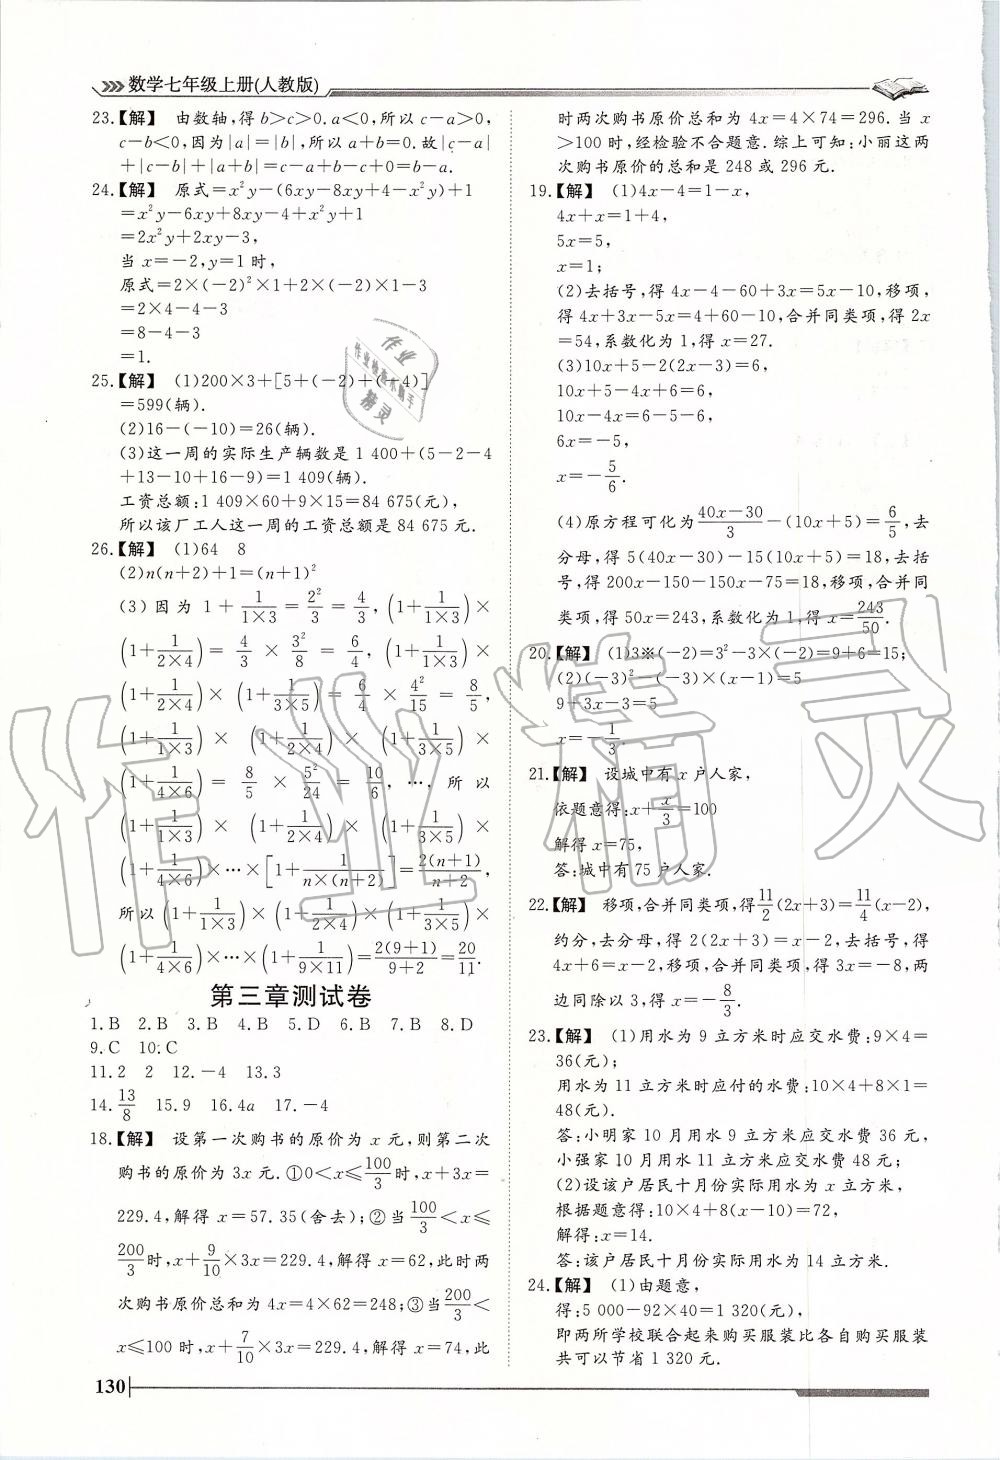 数学七年级上册(人教版)
23.【解】 由数轴,得 b>c>0.a<0,所以 c-a>0,
c-b<0,因为|a|=|b|,所以 a+b=0.故|c-a|
+|c-b|+|a+b|=c-a+b-c+0=b-a.
24.【解】 原式=x²y-(6xy-8xy+4-x²y)+1
=x²y-6xy+8xy-4+x²y+1
=2x²y+2xy-3,
当 x=-2,y=1 时,
原式=2×(-2)²×1+2×(-2)×1-3
=2×4-4-3
=8-4-3
=1.
25.【解】 (1)200×3+[5+(-2)+(-4)]
=599(辆).
(2)16-(-10)=26(辆).
(3)这一周的实际生产辆数是 1 400+(5-2-4
+13-10+16-9)=1 409(辆).
工资总额:1 409×60+9×15=84 675(元),
所以该厂工人这一周的工资总额是 84 675 元.
26.【解】 (1)64 8
(2)n(n+2)+1=(n+1)²
(3)因为 1+1/(1×3)=2²/3=4/3,(1+1/(1×3))×
(1+1/(2×4))=4/3×3²/8=6/4,(1+1/(1×3))
×(1+1/(2×4))×(1+1/(3×5))=6/4×4²/15=8/5,
(1+1/(1×3))×(1+1/(2×4))×(1+1/(3×5))×
(1+1/(4×6))=8/5×5²/24=10/6,…,所以
(1+1/(1×3))×(1+1/(2×4))×(1+1/(3×5))×
(1+1/(4×6))×…×[1+1/(n×(n+2))]=2(n+1)/(n+2),
所以(1+1/(1×3))×(1+1/(2×4))×(1+1/(3×5))×
(1+1/(4×6))×…×(1+1/(9×11))=2(9+1)/(9+2)=20/11.
第三章测试卷
1.B 2.B 3.B 4.B 5.D 6.B 7.B 8.D
9.C 10.C
11.2 2 12.-4 13.3
14.13/8 15.9 16.4a 17.-4
18.【解】 设第一次购书的原价为 x 元,则第二次
购书的原价为 3x 元.①0<x≤100/3时,x+3x=
229.4,解得 x=57.35(舍去);②当100/3<x≤
200/3时,x+9/10×3x=229.4,解得 x=62,此时两
次购书原价总和为 4x=4×62=248;③当200/3<
x≤100 时,x+7/10×3x=229.4,解得 x=74,此
时两次购书原价总和为 4x=4×74=296.当 x
>100 时,经检验不合题意.综上可知:小丽这两
次购书原价的总和是 248 或 296 元.
19.【解】 (1)4x-4=1-x,
4x+x=1+4,
5x=5,
x=1;
(2)去括号,得 4x-4-60+3x=5x-10,移项,
得 4x+3x-5x=4+60-10,合并同类项,得 2x
=54,系数化为 1,得 x=27.
(3)10x+5-2(2x-3)=6,
10x+5-4x+6=6,
10x-4x=6-5-6,
6x=-5,
x=-5/6.
(4)原方程可化为(40x-30)/3-(10x+5)=6/5,去
分母,得 5(40x-30)-15(10x+5)=18,去括
号,得 200x-150-150x-75=18,移项,合并同
类项,得 50x=243,系数化为 1,得 x=243/50.
20.【解】 (1)3※(-2)=3²-3×(-2)=9+6=15;
(2)(-3)²-(-3)×(x-1)=5
9+3x-3=5
x=-1/3.
21.【解】 设城中有 x 户人家,
依题意得:x+x/3=100
解得 x=75,
答:城中有 75 户人家.
22.【解】 移项,合并同类项,得11/2(2x+3)=11/4(x-2),
约分,去分母,得 2(2x+3)=x-2,去括号,得
4x+6=x-2,移项,合并同类项,得 3x=-8,两
边同除以 3,得 x=-8/3.
23.【解】 (1)用水为 9 立方米时应交水费:9×4=
36(元);
用水为 11 立方米时应付的水费:10×4+8×1=
48(元).
答:小明家 10 月用水 9 立方米应交水费 36 元,
小强家 10 月用水 11 立方米应交水费 48 元;
(2)设该户居民十月份实际用水为 x 立方米,
根据题意得:10×4+8(x-10)=72,
解得:x=14.
答:该户居民十月份实际用水为 14 立方米.
24.【解】 (1)由题意,
得:5 000-92×40=1 320(元),
即两所学校联合起来购买服装比各自购买服装
共可以节省 1 320 元.
130
作业精灵